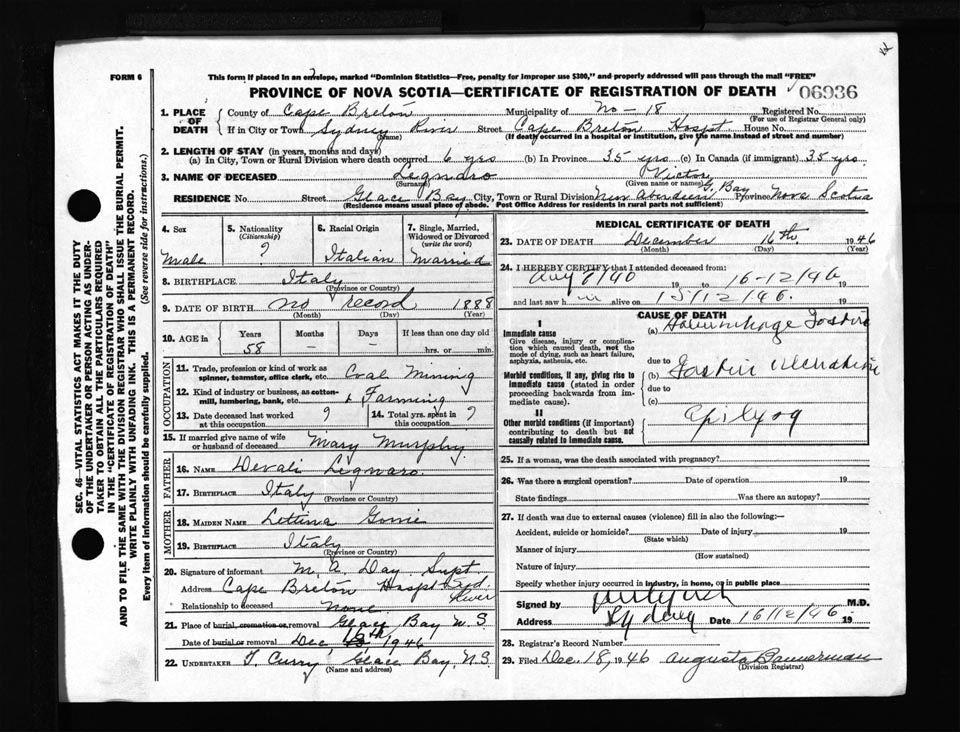 FORM 6
This form if placed in an envelope, marked "Dominion Statistics—Free, penalty for improper use $300," and properly addressed will pass through the mail "FREE"
PROVINCE OF NOVA SCOTIA—CERTIFICATE OF REGISTRATION OF DEATH
06936
1. PLACE OF DEATH
County of Cape Breton Municipality of No - 18 Registered No.
(For use of Registrar General only)
If in City or Town Sydney River Street Cape Breton Hospt House No.
(Name) (If death occurred in a hospital or institution, give the name instead of street and number)
2. LENGTH OF STAY (in years, months and days)
(a) In City, Town or Rural Division where death occurred 6 yrs (b) In Province 35 yrs (c) In Canada (if immigrant) 35 yrs
3. NAME OF DECEASED Victor
(Surname) (Given name or names)
RESIDENCE No. Street Glace Bay City, Town or Rural Division New Aberdeen G. Bay Province Nova Scotia
(Residence means usual place of abode. Post Office Address for residents in rural parts not sufficient)
4. Sex
Male
5. Nationality (Citizenship)
?
6. Racial Origin
Italian
7. Single, Married, Widowed or Divorced (write the word)
Married
8. BIRTHPLACE Italy
(Province or Country)
9. DATE OF BIRTH no record 1888
(Month) (Day) (Year)
10. AGE in
Years Months Days If less than one day old
58 — — hrs. or min.
OCCUPATION
11. Trade, profession or kind of work as spinner, teamster, office clerk, etc. Coal Mining
12. Kind of industry or business, as cotton-mill, lumbering, bank, etc. + Farming
13. Date deceased last worked at this occupation ?
14. Total yrs. spent in this occupation ?
15. If married give name of wife or husband of deceased Mary Murphy
FATHER
16. NAME
17. BIRTHPLACE Italy
(Province or Country)
MOTHER
18. MAIDEN NAME
19. BIRTHPLACE Italy
(Province or Country)
20. Signature of informant M. A. Day Supt
Address Cape Breton Hospt Syd. River
Relationship to deceased None
21. Place of burial, cremation or removal Glace Bay N. S
Date of burial or removal Dec 1946
22. UNDERTAKER T. Curry, Glace Bay, N.S.
(Name and address)
MEDICAL CERTIFICATE OF DEATH
23. DATE OF DEATH December 16th 1946
(Month) (Day) (Year)
24. I HEREBY CERTIFY that I attended deceased from:
19 to 16-12/46 19
and last saw h im alive on 15/12/46. 19
CAUSE OF DEATH
I
Immediate cause
Give disease, injury or complication which caused death, not the mode of dying, such as heart failure, asphyxia, asthenia, etc.
(a)
due to
Morbid conditions, if any, giving rise to immediate cause (stated in order proceeding backwards from immediate cause).
(b)
due to
(c)
II
Other morbid conditions (if important) contributing to death but not causally related to immediate cause.
25. If a woman, was the death associated with pregnancy?
26. Was there a surgical operation? Date of operation 19
State findings Was there an autopsy?
27. If death was due to external causes (violence) fill in also the following:—
Accident, suicide or homicide? Date of injury 19
(State which)
Manner of injury
(How sustained)
Nature of injury
Specify whether injury occurred in industry, in home, or in public place
Signed by M.D.
Address Sydney Date 16/12/46 19
28. Registrar's Record Number
29. Filed Dec. 18, 1946 Augusta Bannerman
(Division Registrar)
SEC. 46—VITAL STATISTICS ACT MAKES IT THE DUTY
OF THE UNDERTAKER OR PERSON ACTING AS UNDER-
TAKER TO OBTAIN ALL THE PARTICULARS REQUIRED
IN THE "CERTIFICATE OF REGISTRATION OF DEATH"
AND TO FILE THE SAME WITH THE DIVISION REGISTRAR WHO SHALL ISSUE THE BURIAL PERMIT.
WRITE PLAINLY WITH UNFADING INK. THIS IS A PERMANENT RECORD.
Every item of information should be carefully supplied. (See reverse side for instructions.)